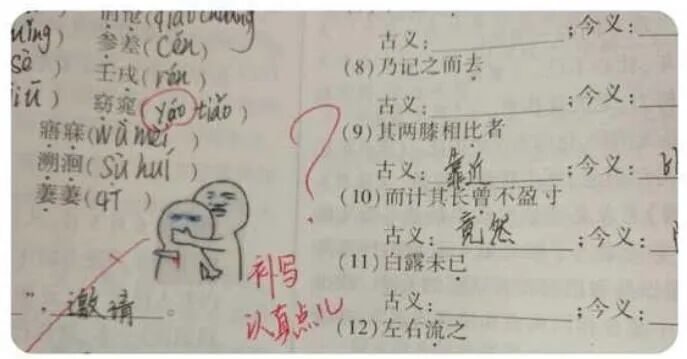 参差(cēn
壬戌(rén
窈窕(yáo tiǎo)
寤寐(wù mèi
溯洄(sù huí)
萋萋(qī
补写
认真点儿
邀请。
古义:;今义:
(8)乃记之而去
古义:;今义:
(9)其两膝相比者
古义:靠近;今义:
(10)而计其长曾不盈寸
古义:竟然;今义:
(11)白露未已
古义:;今义:
(12)左右流之